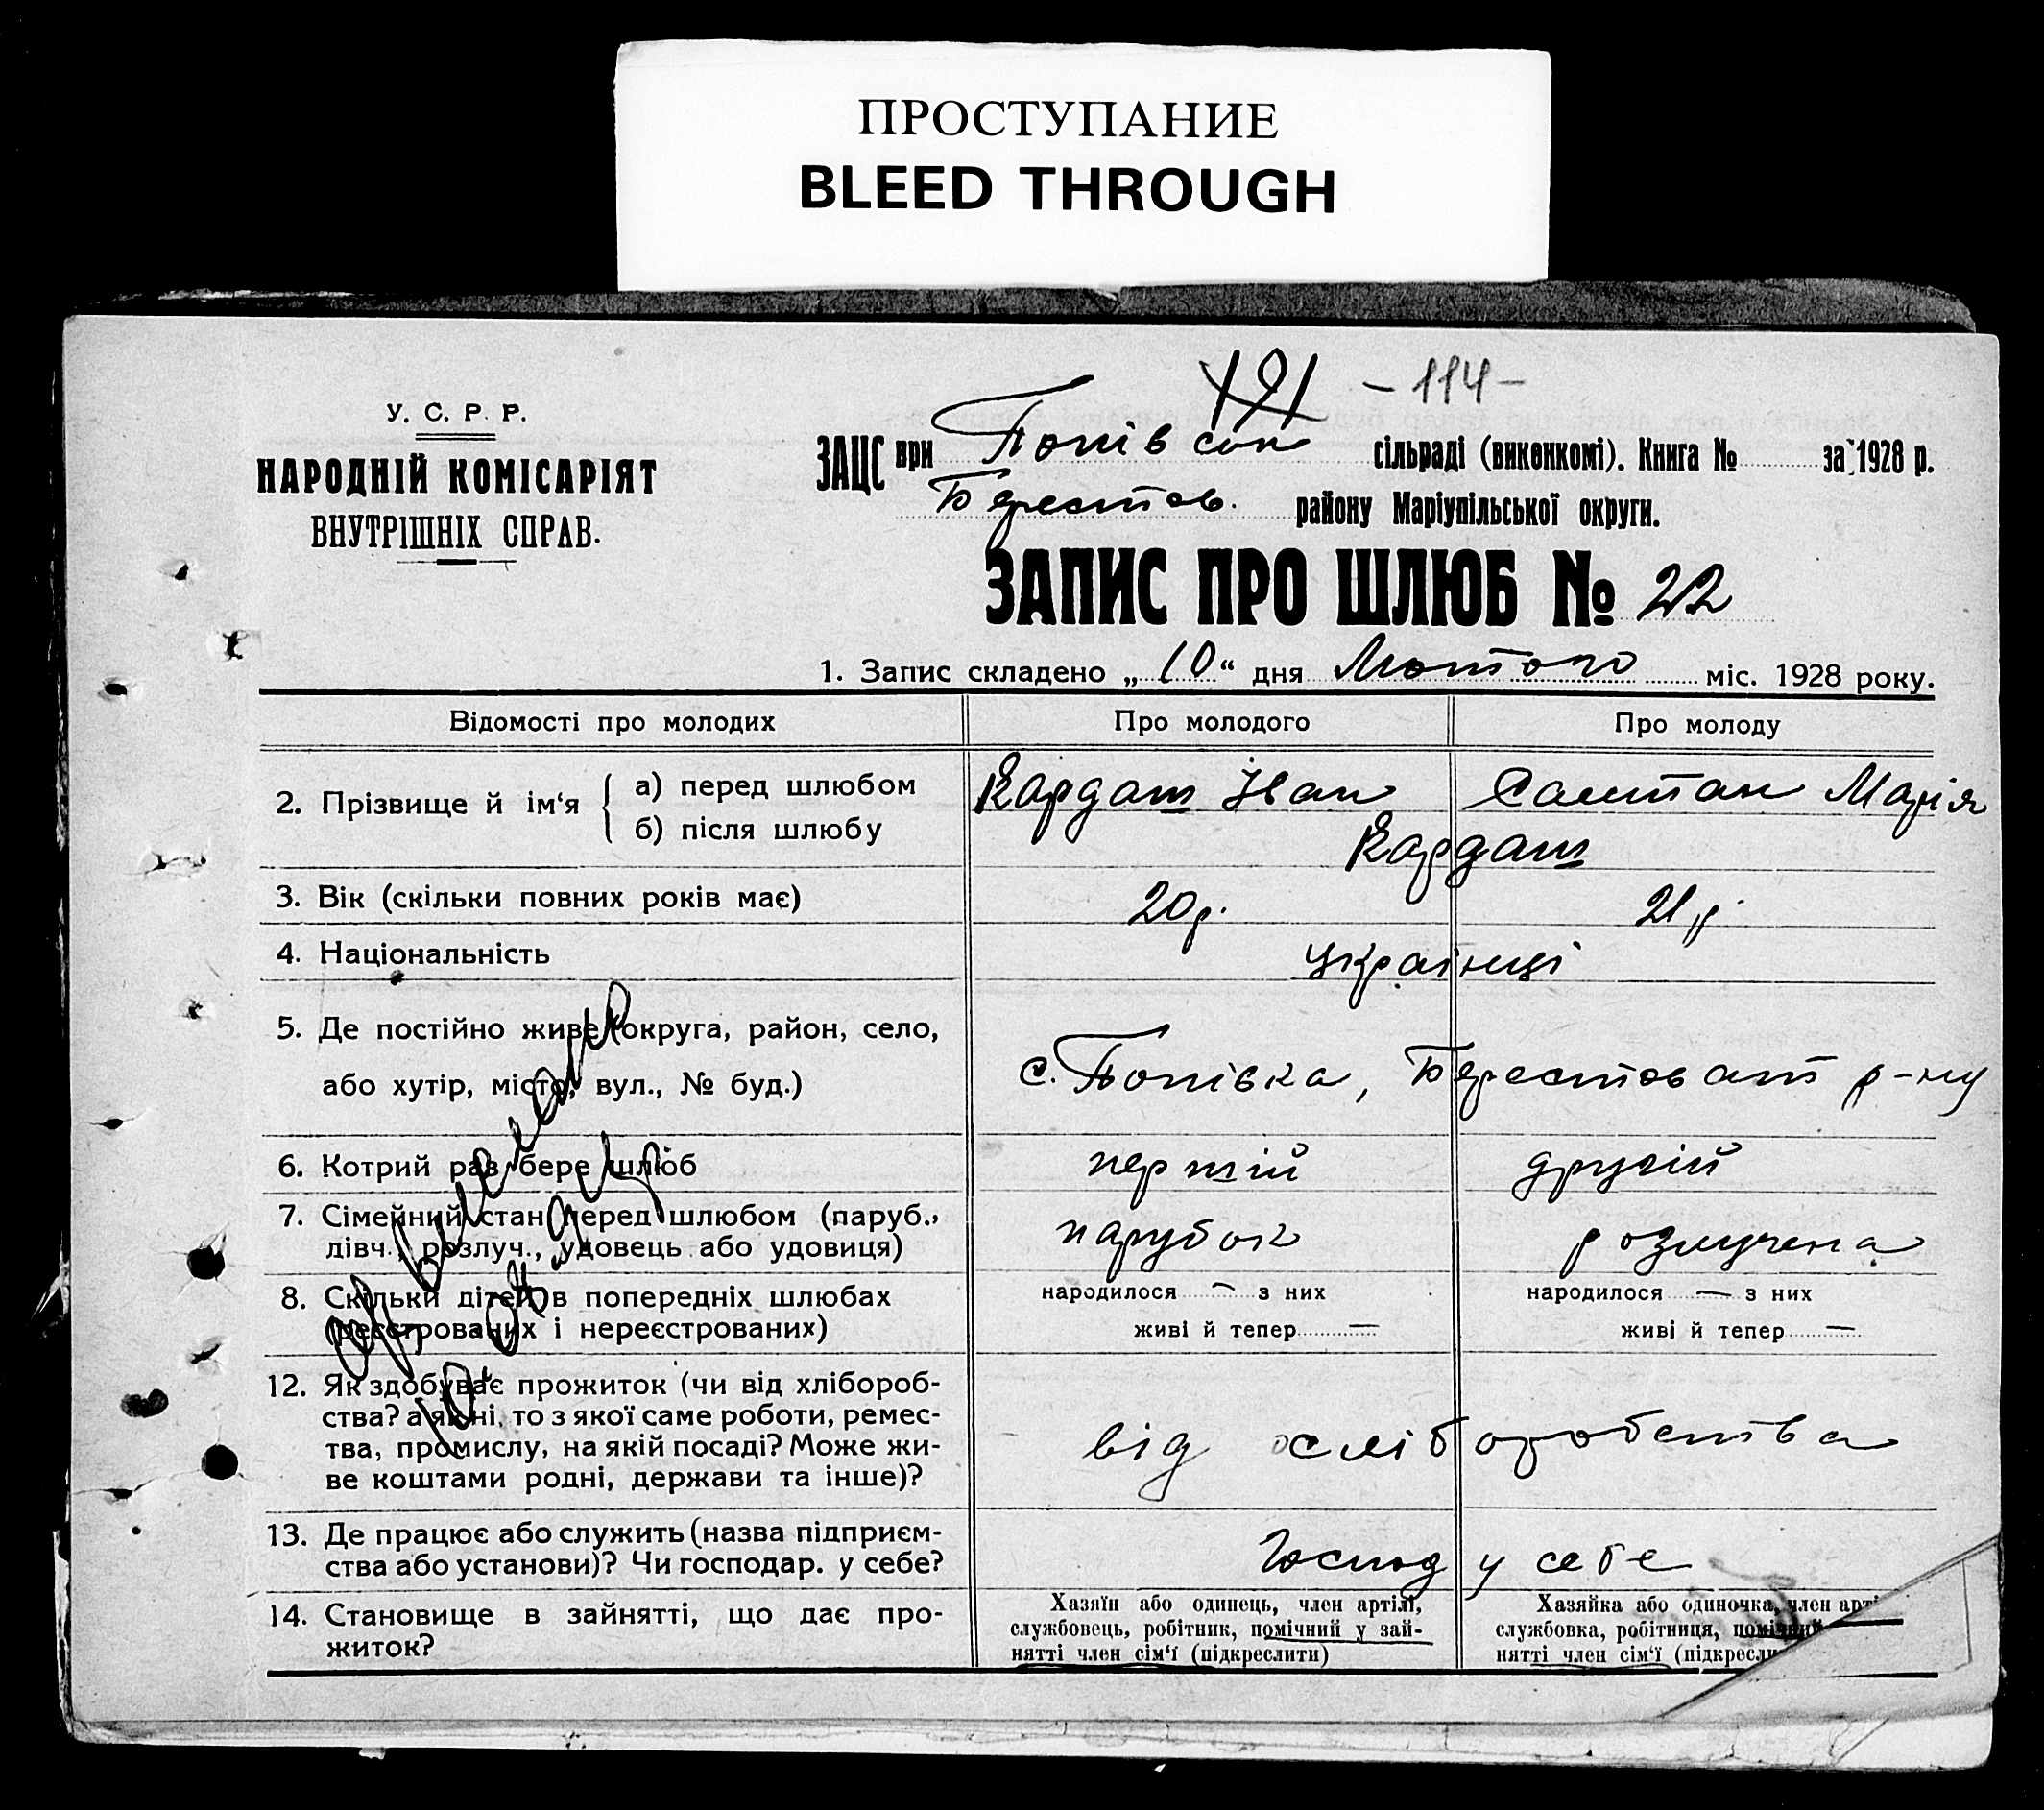 ПРОСТУПАНИЕ
BLEED THROUGH
191 - 114 -
У. С. Р. Р.
НАРОДНІЙ КОМІСАРІЯТ
ВНУТРІШНІХ СПРАВ.
ЗАЦС при Попівськ сільраді (виконкомі). Книга № за 1928 р.
Берестов. району Маріупільської округи.
ЗАПИС ПРО ШЛЮБ № 22
1. Запис складено „10“ дня Лютого міс. 1928 року.
Відомості про молодих Про молодого Про молоду
2. Прізвище й ім‘я { а) перед шлюбом Кардаш Іван Саптан Марія
б) після шлюбу Кардаш
3. Вік (скільки повних років має) 20 р. 21 р.
4. Національність українці
5. Де постійно живе (округа, район, село,
або хутір, місто, вул., № буд.) с. Попівка, Берестоват р-ну
6. Котрий раз бере шлюб першій другій
7. Сімейний стан перед шлюбом (паруб.,
дівч., розлуч., удовець або удовиця) парубок розлучена
8. Скільки дітей в попередніх шлюбах народилося — з них народилося — з них
(реєстрованих і нереєстрованих) живі й тепер — живі й тепер —
12. Як здобуває прожиток (чи від хлібороб-
ства? а як ні, то з якої саме роботи, ремес-
тва, промислу, на якій посаді? Може жи-
ве коштами родні, держави та інше)?
від хліборобства
13. Де працює або служить (назва підприєм-
ства або установи)? Чи господар. у себе?
Господ у себе
14. Становище в зайнятті, що дає про-
житок?
Хазяїн або одинець, член артілі,
службовець, робітник, помічний у зай-
нятті член сім‘ї (підкреслити)
Хазяйка або одиночка, член арті
службовка, робітниця, помічний
нятті член сім‘ї (підкресли